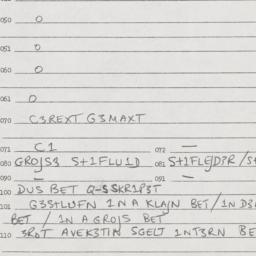 050 O
051 O
060 O
061 O
070 C3REXT G3MAXT
071 C1 072 —
080 GROJS3 S+1FLU1D 081 S+1FLEJD?R /S+
090 — 091 —
100 DUS BET Q-S SKR1P3T
101 G3S+LUFN 1N A KLAJN BET / 1N D3
BET / 1N A GROJS BET
110 3ROT AVEK3T1N SGELT 1NT3RN BE